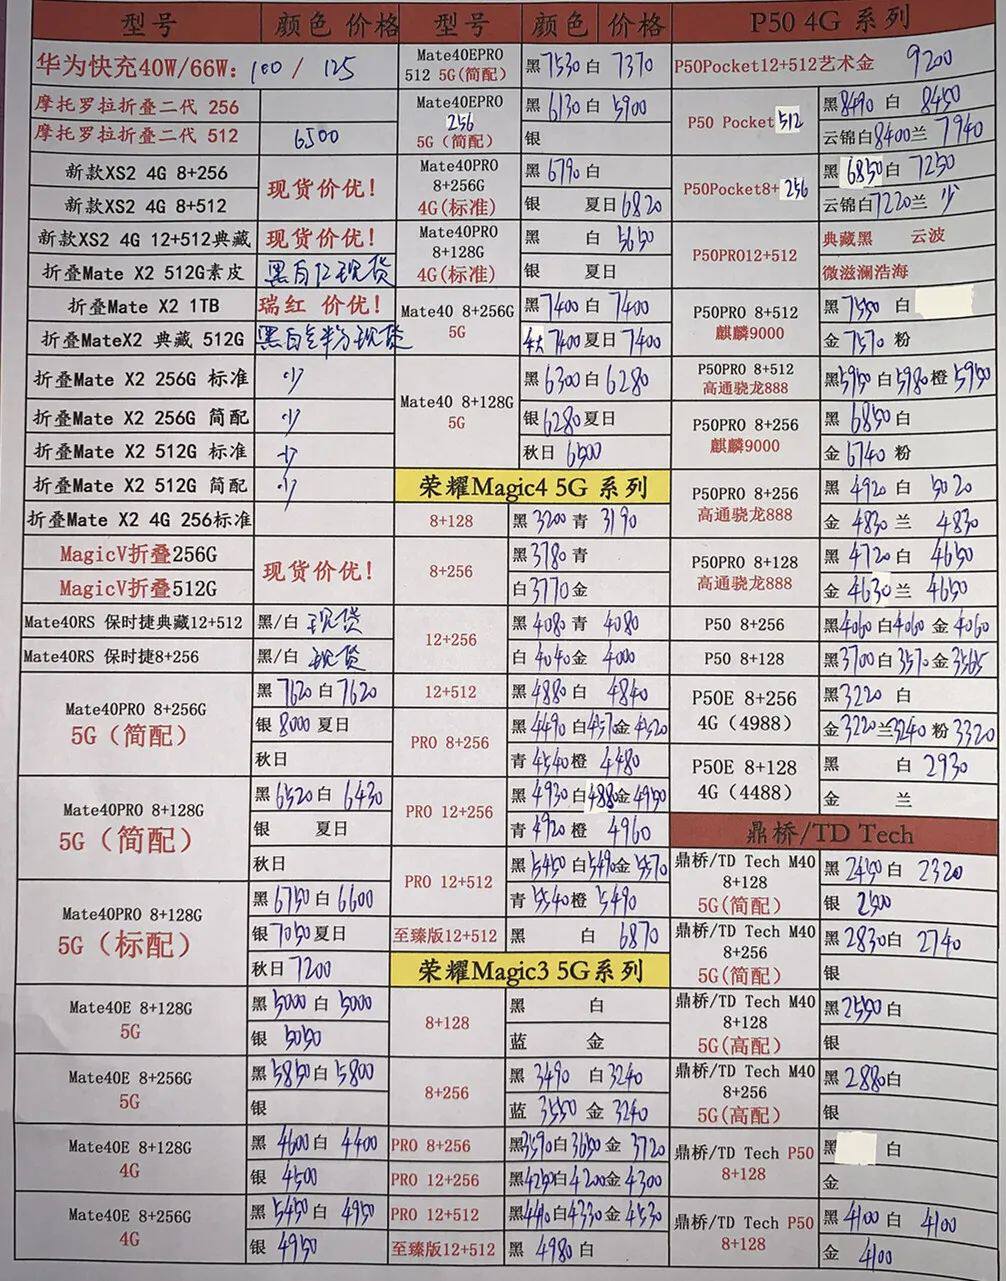 型号 颜色 价格
华为快充40W/66W: 100 / 125
摩托罗拉折叠二代 256
摩托罗拉折叠二代 512 6500
新款XS2 4G 8+256 现货价优!
新款XS2 4G 8+512
新款XS2 4G 12+512典藏 现货价优!
折叠Mate X2 512G素皮
折叠Mate X2 1TB 瑞红 价优!
折叠MateX2 典藏 512G
折叠Mate X2 256G 标准 少
折叠Mate X2 256G 简配 少
折叠Mate X2 512G 标准 少
折叠Mate X2 512G 简配 少
折叠Mate X2 4G 256标准
MagicV折叠256G 现货价优!
MagicV折叠512G
Mate40RS 保时捷典藏12+512 黑/白 现货
Mate40RS 保时捷8+256 黑/白 现货
Mate40PRO 8+256G
5G(简配)
黑 7620 白 7620
银 8000 夏日
秋日
Mate40PRO 8+128G
5G(简配)
黑 6520 白 6430
银 夏日
秋日
Mate40PRO 8+128G
5G(标配)
黑 6750 白 6600
银 7050 夏日
秋日 7200
Mate40E 8+128G
5G
黑 5000 白 5000
银 5050
Mate40E 8+256G
5G
黑 5850 白 5800
银
Mate40E 8+128G
4G
黑 4600 白 4400
银 4500
Mate40E 8+256G
4G
黑 5450 白 4950
银 4950
型号 颜色 价格
Mate40EPRO
512 5G(简配)
黑 7530 白 7370
Mate40EPRO
256
5G(简配)
黑 6130 白 5900
银
Mate40PRO
8+256G
4G(标准)
黑 6790 白
银 夏日 6820
Mate40PRO
8+128G
4G(标准)
黑 白 5650
银 夏日
Mate40 8+256G
5G
黑 7400 白 7400
7400 夏日 7400
Mate40 8+128G
5G
黑 6300 白 6280
银 6280 夏日
秋日 6500
荣耀Magic4 5G 系列
8+128 黑 3200 青 3190
8+256
黑 3780 青
白 3770 金
12+256
黑 4080 青 4080
白 4040 金 4000
12+512 黑 4880 白 4840
PRO 8+256
黑 4490 白 4570 金 4520
青 4540 橙 4480
PRO 12+256
黑 4930 白 4880 金 4950
青 4920 橙 4960
PRO 12+512
黑 5450 白 5490 金 5570
青 5540 橙 5490
至臻版12+512 黑 白 6870
荣耀Magic3 5G系列
8+128
黑 白
蓝 金
8+256
黑 3490 白 3240
蓝 3550 金 3240
PRO 8+256 黑 3590 白 3650 金 3720
PRO 12+256 黑 4250 白 4200 金 4300
PRO 12+512 黑 4410 白 4330 金 4530
至臻版12+512 黑 4980 白
P50 4G 系列
P50Pocket12+512艺术金 9200
P50 Pocket 512
黑 8490 白 8450
云锦白 8400 兰 7940
P50Pocket8+ 256
黑 6850 白 7250
云锦白 7220 兰 少
P50PRO12+512
典藏黑 云波
微滋澜浩海
P50PRO 8+512
麒麟9000
黑 7550 白
金 7570 粉
P50PRO 8+512
高通骁龙888
黑 5950 白 5980 橙 5950
P50PRO 8+256
麒麟9000
黑 6850 白
金 6740 粉
P50PRO 8+256
高通骁龙888
黑 4920 白 5020
金 4830 兰 4830
P50PRO 8+128
高通骁龙888
黑 4720 白 4650
金 4630 兰 4650
P50 8+256 黑 4060 白 4060 金 4060
P50 8+128 黑 3700 白 3570 金 3565
P50E 8+256
4G (4988)
黑 3220 白
金 3220 兰 3240 粉 3320
P50E 8+128
4G (4488)
黑 白 2930
金 兰
鼎桥/TD Tech
鼎桥/TD Tech M40
8+128
5G(简配)
黑 2450 白 2320
银 2500
鼎桥/TD Tech M40
8+256
5G(简配)
黑 2830 白 2740
银
鼎桥/TD Tech M40
8+128
5G(高配)
黑 2550 白
银
鼎桥/TD Tech M40
8+256
5G(高配)
黑 2880 白
银
鼎桥/TD Tech P50
8+128
黑 白
金
鼎桥/TD Tech P50
8+128
黑 4100 白 4100
金 4100